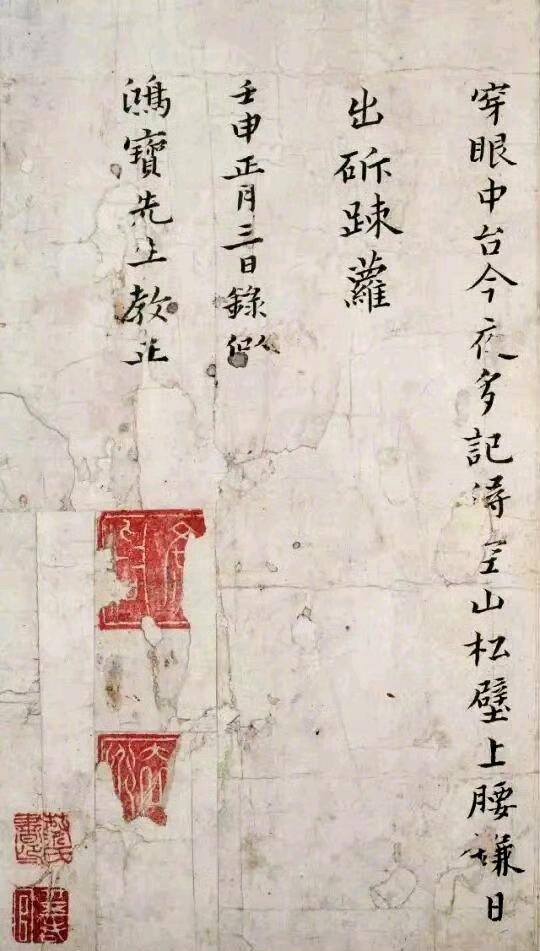 穿眼中台今夜多記得空山松壁上腰鎌日
出斫踈蘿
壬申正月三日錄似
鴻寶先生教正